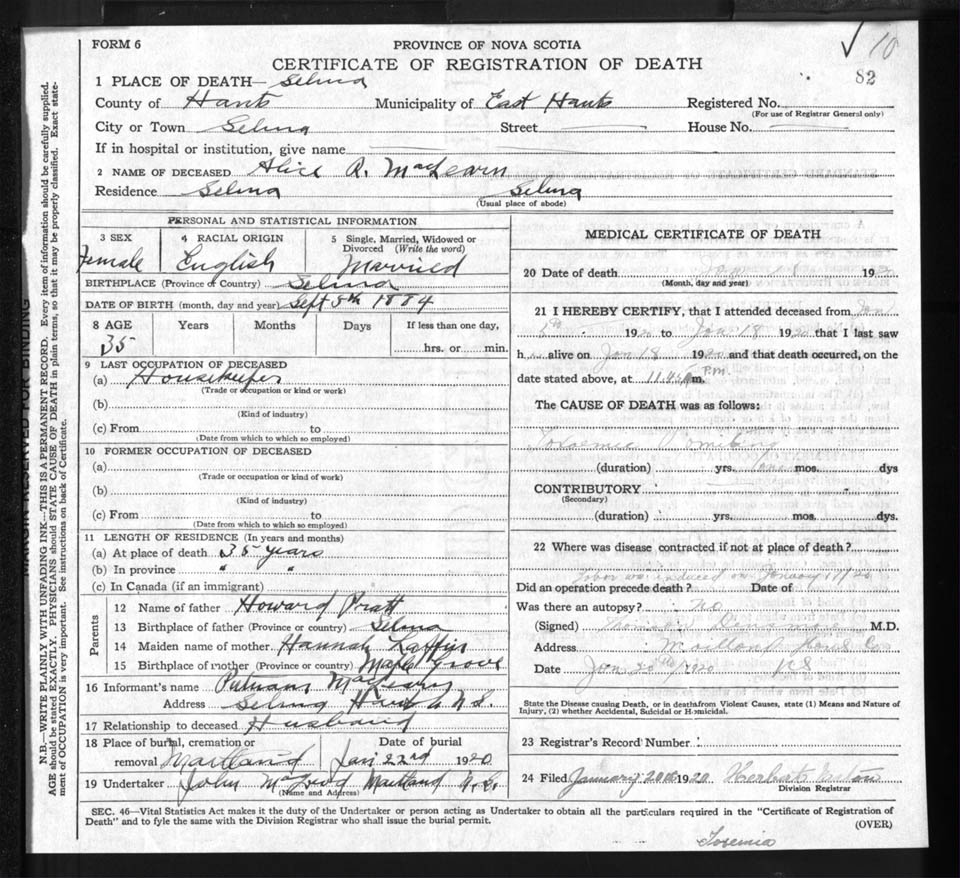 FORM 6
PROVINCE OF NOVA SCOTIA
10
CERTIFICATE OF REGISTRATION OF DEATH
82
1 PLACE OF DEATH— Selma
County of Hants Municipality of East Hants Registered No.
(For use of Registrar General only)
City or Town Selma Street House No.
If in hospital or institution, give name
2 NAME OF DECEASED Alice R. MacLearn
Residence Selma Selma
(Usual place of abode)
PERSONAL AND STATISTICAL INFORMATION
3 SEX 4 RACIAL ORIGIN 5 Single, Married, Widowed or Divorced (Write the word)
Female English Married
BIRTHPLACE (Province or Country) Selma
DATE OF BIRTH (month, day and year) Sept 5th 1884
8 AGE Years Months Days If less than one day,
35 hrs. or min.
9 LAST OCCUPATION OF DECEASED
(a) Housekeeper
(Trade or occupation or kind or work)
(b)
(Kind of industry)
(c) From to
(Date from which to which so employed)
10 FORMER OCCUPATION OF DECEASED
(a)
(Trade or occupation or kind of work)
(b)
(Kind of industry)
(c) From to
(Date from which to which so employed)
11 LENGTH OF RESIDENCE (In years and months)
(a) At place of death 35 years
(b) In province " "
(c) In Canada (if an immigrant)
Parents
12 Name of father Howard Pratt
13 Birthplace of father (Province or country) Selma
14 Maiden name of mother Hannah
15 Birthplace of mother (Province or country) Maple Grove
16 Informant's name Putnam MacLearn
Address Selma Hants N.S.
17 Relationship to deceased Husband
18 Place of burial, cremation or removal Maitland Date of burial Jan 22nd 1920
19 Undertaker John Maitland N.S.
(Name and Address)
MEDICAL CERTIFICATE OF DEATH
20 Date of death Jan 18 1920
(Month, day and year)
21 I HEREBY CERTIFY, that I attended deceased from Jan
5th 1920 to Jan 18 1920 that I last saw
h alive on Jan 18 1920 and that death occurred, on the
date stated above, at 11.45 P.M. m.
The CAUSE OF DEATH was as follows:
Toxaemic Vomiting
(duration) yrs. one mos. dys
CONTRIBUTORY
(Secondary)
(duration) yrs. mos. dys.
22 Where was disease contracted if not at place of death?
Labor was induced on January 17/20
Did an operation precede death? Date of
Was there an autopsy? no
(Signed) M.D.
Address Maitland Hants Co
Date Jan 20th 1920 N S
State the Disease causing Death, or in deaths from Violent Causes, state (1) Means and Nature of Injury, (2) whether Accidental, Suicidal or Homicidal.
23 Registrar's Record Number
24 Filed January 20th 1920 Herbert
Division Registrar
SEC. 46—Vital Statistics Act makes it the duty of the Undertaker or person acting as Undertaker to obtain all the particulars required in the "Certificate of Registration of
Death" and to fyle the same with the Division Registrar who shall issue the burial permit.
(OVER)
Toxemia
MARGIN RESERVED FOR BINDING
N.B.—WRITE PLAINLY WITH UNFADING INK—THIS IS A PERMANENT RECORD. Every item of information should be carefully supplied.
AGE should be stated EXACTLY. PHYSICIANS should STATE CAUSE OF DEATH in plain terms, so that it may be properly classified. Exact state-
ment of OCCUPATION is very important. See instructions on back of Certificate.